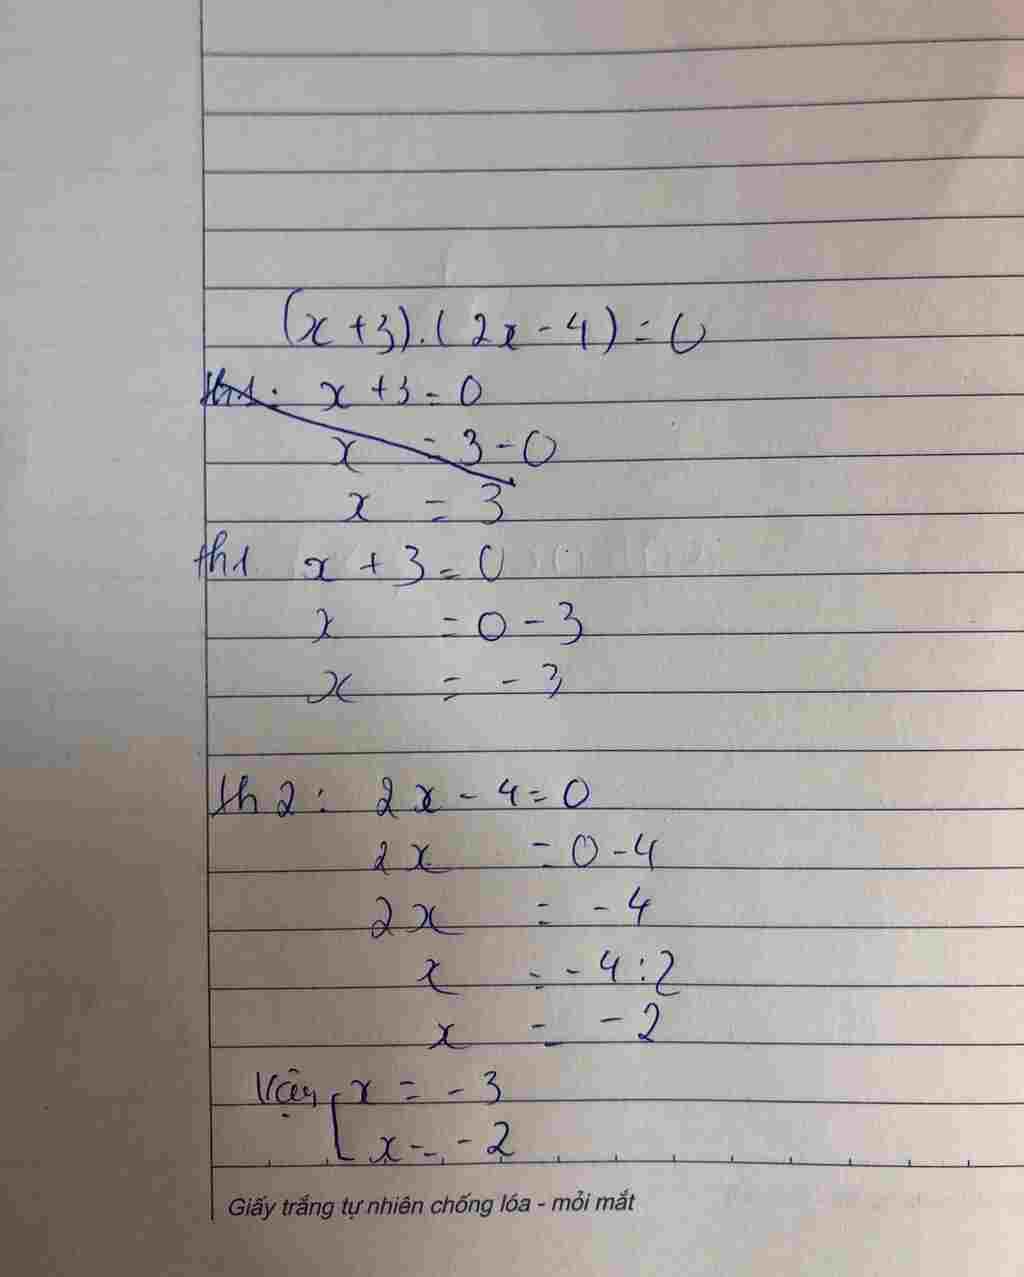 (x+3).(2x-4)=0
th1: x+3=0
x = 3-0
x = 3
th1 x+3=0
x = 0-3
x = -3
th2: 2x-4=0
2x = 0-4
2x = -4
x = -4:2
x = -2
Vậy [x = -3
x = -2
Giấy trắng tự nhiên chống lóa - mỏi mắt